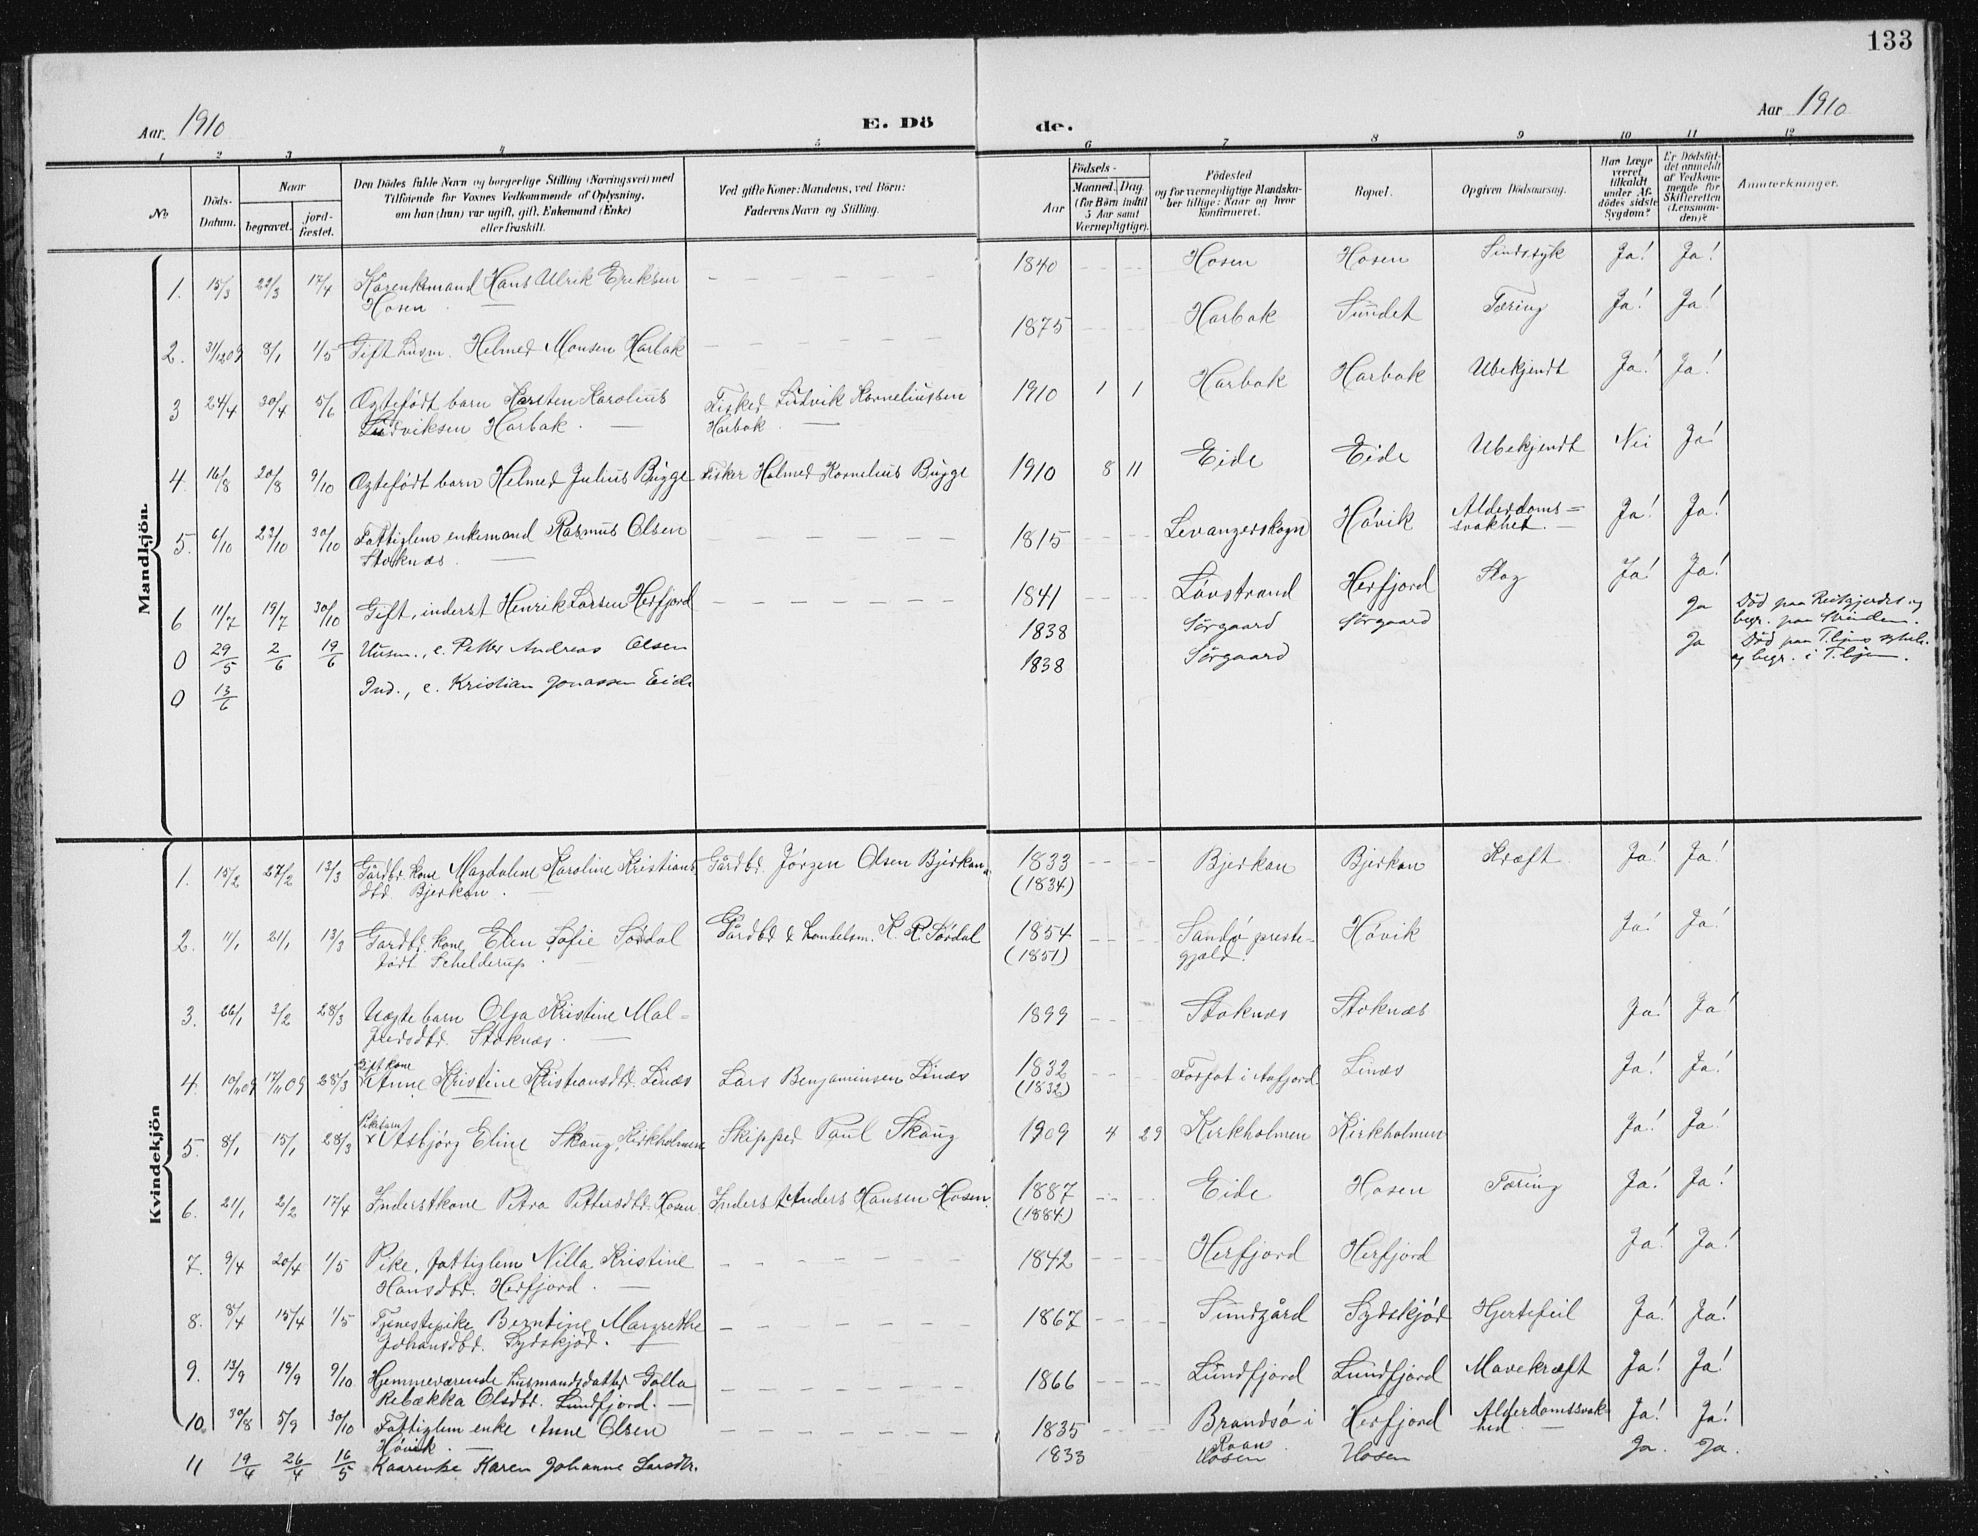 133
Aar 1910
E. Dö
de.
Aar 1910
1 2 3 4 5 6 7 8 9 10 11 12
No
Döds-Datum.
Naar
begravet.
jord-fæstet.
Den Dödes fulde Navn og borgerlige Stilling (Næringsvei) med
Tilföiende for Voxnes Vedkommende af Oplysning,
om han (hun) var ugift, gift, Enkemand (Enke)
eller fraskilt.
Ved gifte Koner: Mandens, ved Börn:
Faderens Navn og Stilling.
Födsels-
Aar
Maaned. Dag.
(for Börn indtil
5 Aar samt
Værnepligtige).
Födested
og for værnepligtige Mandska-
ber tillige: Naar og hvor
konfirmeret.
Bopæl.
Opgiven Dödsaarsag.
Har Læge
været
tilkaldt
under Af-
dödes sidste
Sygdom?
Er Dödsfal-
det anmeldt
af Vedkom-
mende for
Skifteretten
(Lensman-
den)?
Anmærkninger.
Mandkjön.
1. 15/3 22/3 17/4 Kaarenkemand Hans Ulrik Eriksen 1840 Hosen Hosen Sindssyk Ja! Ja!
Hosen.
2. 31/12 09 8/1 1/5 Gift husm. Helmer Monsen Harbak 1875 Harbak Sundet Tæring Ja! Ja!
3 24/4 30/4 5/6 Ægtefødt barn Karsten Karolius Fisker Ludvik Korneliussen 1910 1 1 Harbak Harbak Ubekjendt Ja! Ja!
Ludviksen Harbak. Harbak.
4. 16/8 20/8 9/10 Ægtefødt barn Helmer Julius Bugge Fisker Halmer Kornelius Bugge 1910 8 11 Eide Eide Ubekjendt Nei Ja!
5. 6/10 23/10 30/10 Fattiglem enkemand Rasmus Olsen 1815 Levangerskogn Høvik Alderdoms=
Stoknæs. svakhet. Ja! Ja!
6 11/7 19/7 30/10 Gift, inderst Henrik Larsen Herfjord 1841 Løvstrand Herfjord Slag Ja! Ja!
0 29/5 2/6 19/6 Husm., e. Petter Andreas Olsen 1838 Sørgaard Sørgaard Ja Død paa Reitgjerdet og
begr. paa Strinden.
0 13/6 Ind., e. Kristian Jonassen Eide 1838 Sørgaard Ja Død paa T.hjems sykeh.
og begr. i T.hjem.
Kvindekjön
1. 15/2 27/2 13/3 Gårdbr. kone Magdalene Karoline Kristians Gårdbr. Jørgen Olsen Bjerkan 1833 Bjerkan Bjerkan Kræft Ja! Ja!
dtr. Bjerkan. (1834)
2. 11/1 21/1 13/3 Gardbr. kone Elen Sofie Sørdal Gårdbr & handelsm. K. R. Sørdal 1854 Sandø preste- Høvik Ja! Ja!
født Schelderup. (1851) gjæld.
3. 26/1 3/2 28/3 Uægte barn Olga Kristine Mal= 1899 Stoknæs Stoknæs Ja! Ja!
fredsdtr. Stoknæs.
Gift kone
4. 10/11 09 17/11 09 28/3 Anne Kristine Kristiansdtr. Linæs Lars Benjaminsen Linæs 1832 Forfot i Aafjord Linæs Ja! Ja!
(1832)
Pikebarn
5. 8/1 15/1 28/3 Asbjørg Eline Skaug, Kirkholmen Skipper Paul Skaug 1909 4 29 Kirkholmen Kirkholmen Ja! Ja!
6. 21/1 2/2 17/4 Inderstkone Petra Pettersdtr. Hosen Inderst Anders Hansen Hosen. 1887 Eide Hosen Tæring Ja! Ja!
(1884)
7. 9/4 20/4 1/5 Pike, fattiglem Nilla Kristine 1842 Herfjord Herfjord Ja! Ja!
Hansdtr. Herfjord.
8. 8/4 15/4 1/5 Tjenestepike Berntine Margrethe 1867 Sundgård Sydskjør Hjertefeil Ja! Ja!
Johansdtr. Sydskjør.
9. 13/9 19/9 9/10 Hjemmeværende husmandsdatter Golla 1866 Lundfjord Lundfjord Mavekræft Ja! Ja!
Rebækka Olsdtr. Lundfjord.
10. 30/8 5/9 30/10 Fattiglem enke Anne Olsen 1835 Brandsø i Herfjord Alderdomssvak-
Høvik. Roan hed. Ja! Ja!
11 19/4 26/4 16/5 Kaarenke Karen Johanne Larsdtr. 1833 Hosen Hosen Ja. Ja.